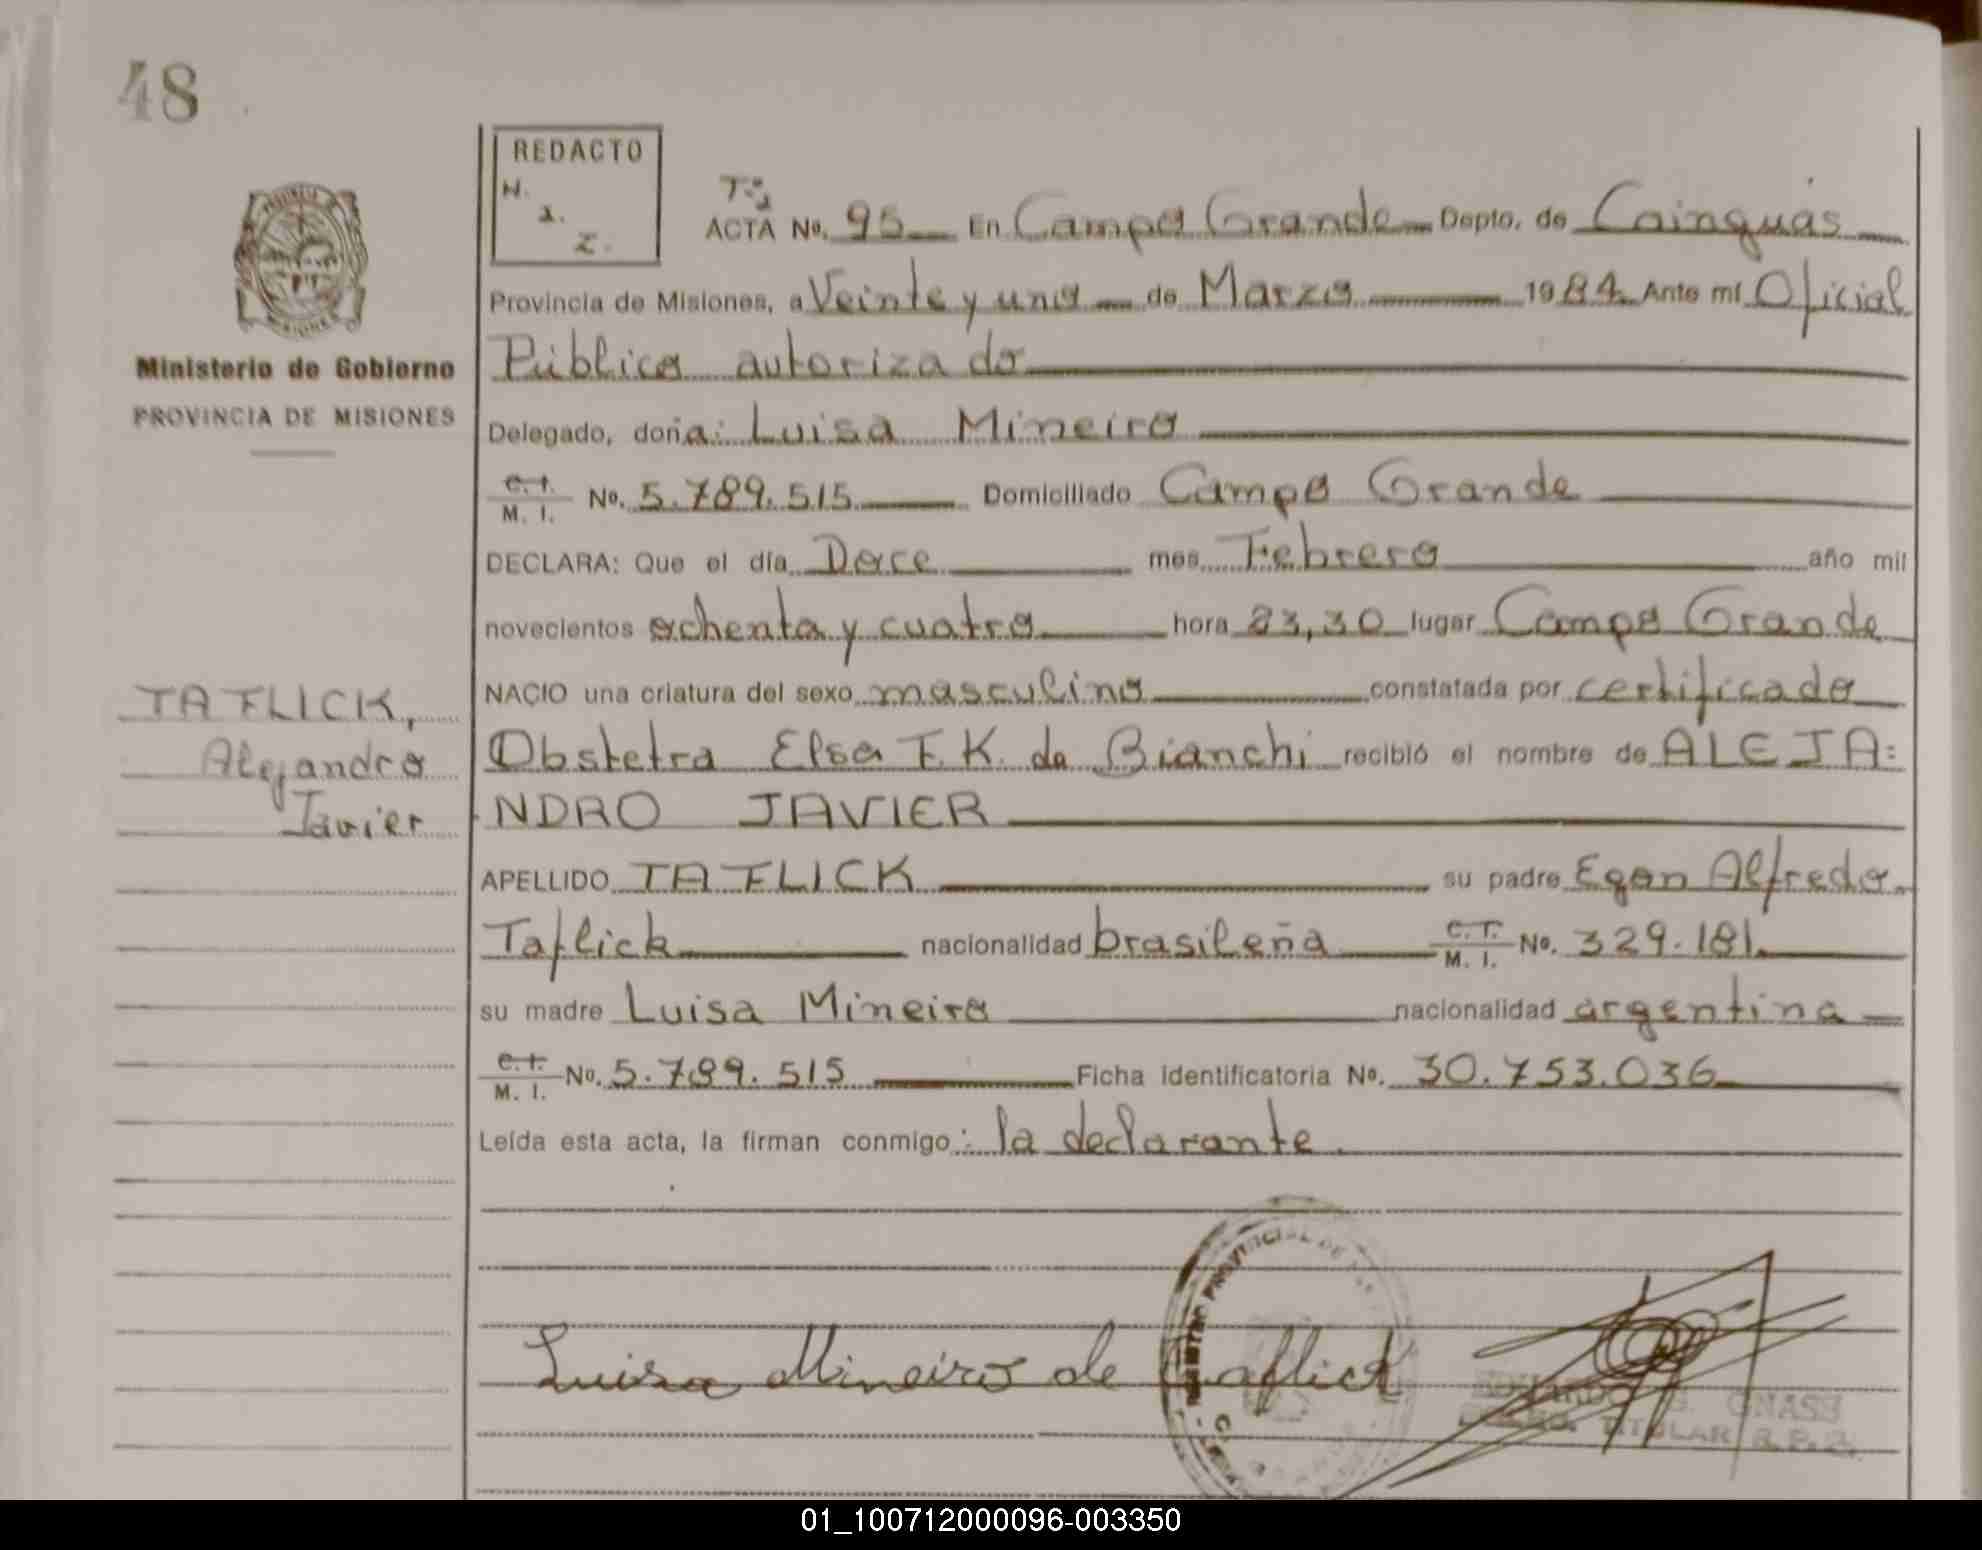 48
REDACTO
N.
I.
Z.
Tº 2
ACTA Nº. 95 En Campo Grande Depto. de Cainguás
Provincia de Misiones, a Veinte y uno de Marzo 1984. Ante mí Oficial
Público autorizado
Ministerio de Gobierno
PROVINCIA DE MISIONES
Delegado, doña: Luisa Mineiro
C. I. M. I. Nº. 5.789.515 Domiciliado Campo Grande
DECLARA: Que el día Doce mes Febrero año mil
novecientos ochenta y cuatro hora 23,30 lugar Campo Grande
NACIO una criatura del sexo masculino constatada por certificado
TAFLICK,
Alejandro
Javier
Obstetra Elsa F. K. de Bianchi recibió el nombre de ALEJA=
NDRO JAVIER
APELLIDO TAFLICK su padre Egon Alfredo
Taflick nacionalidad brasileña C. I. M. I. Nº. 329.181.
su madre Luisa Mineiro nacionalidad argentina
C. I. M. I. Nº. 5.789.515 Ficha identificatoria Nº. 30.753.036
Leída esta acta, la firman conmigo: la declarante.
REGISTRO PROVINCIAL DE
Luisa Mineiro de Taflick
EDUARDO GNASS
TITULAR
01_100712000096-003350